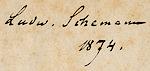 Ludw. Schemann
1874.